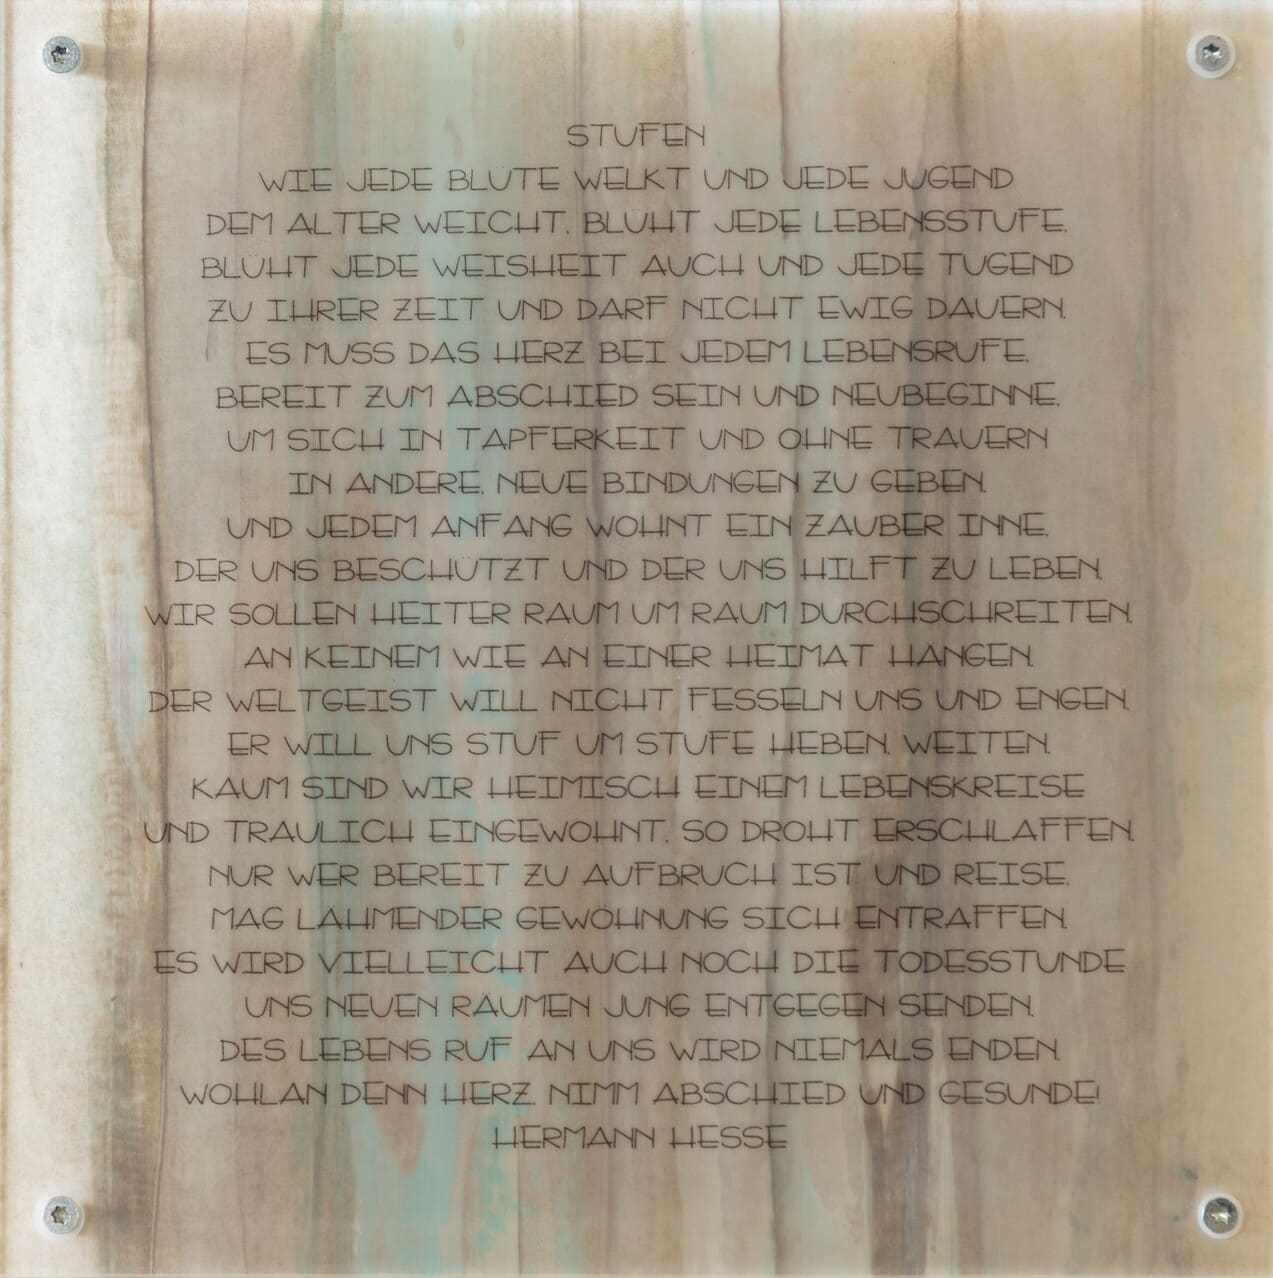 STUFEN
WIE JEDE BLÜTE WELKT UND JEDE JUGEND
DEM ALTER WEICHT, BLÜHT JEDE LEBENSSTUFE,
BLÜHT JEDE WEISHEIT AUCH UND JEDE TUGEND
ZU IHRER ZEIT UND DARF NICHT EWIG DAUERN.
ES MUSS DAS HERZ BEI JEDEM LEBENSRUFE,
BEREIT ZUM ABSCHIED SEIN UND NEUBEGINNE,
UM SICH IN TAPFERKEIT UND OHNE TRAUERN
IN ANDERE, NEUE BINDUNGEN ZU GEBEN.
UND JEDEM ANFANG WOHNT EIN ZAUBER INNE,
DER UNS BESCHÜTZT UND DER UNS HILFT ZU LEBEN.
WIR SOLLEN HEITER RAUM UM RAUM DURCHSCHREITEN,
AN KEINEM WIE AN EINER HEIMAT HANGEN,
DER WELTGEIST WILL NICHT FESSELN UNS UND ENGEN,
ER WILL UNS STUF UM STUFE HEBEN, WEITEN.
KAUM SIND WIR HEIMISCH EINEM LEBENSKREISE
UND TRAULICH EINGEWOHNT, SO DROHT ERSCHLAFFEN,
NUR WER BEREIT ZU AUFBRUCH IST UND REISE,
MAG LÄHMENDER GEWÖHNUNG SICH ENTRAFFEN.
ES WIRD VIELLEICHT AUCH NOCH DIE TODESSTUNDE
UNS NEUEN RÄUMEN JUNG ENTGEGEN SENDEN,
DES LEBENS RUF AN UNS WIRD NIEMALS ENDEN.
WOHLAN DENN HERZ, NIMM ABSCHIED UND GESUNDE!
HERMANN HESSE